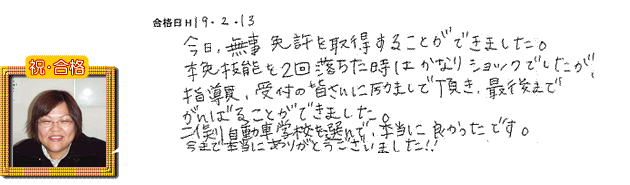 合格日 H19.2.13
今日、無事免許を取得することができました。
本免技能を2回落ちた時はかなりショックでしたが
指導員、受付の皆さんに励まして頂き、最後まで
がんばることができました。
二俣川自動車学校を選んで、本当に良かったです。
今まで本当にありがとうございました!!
祝・合格